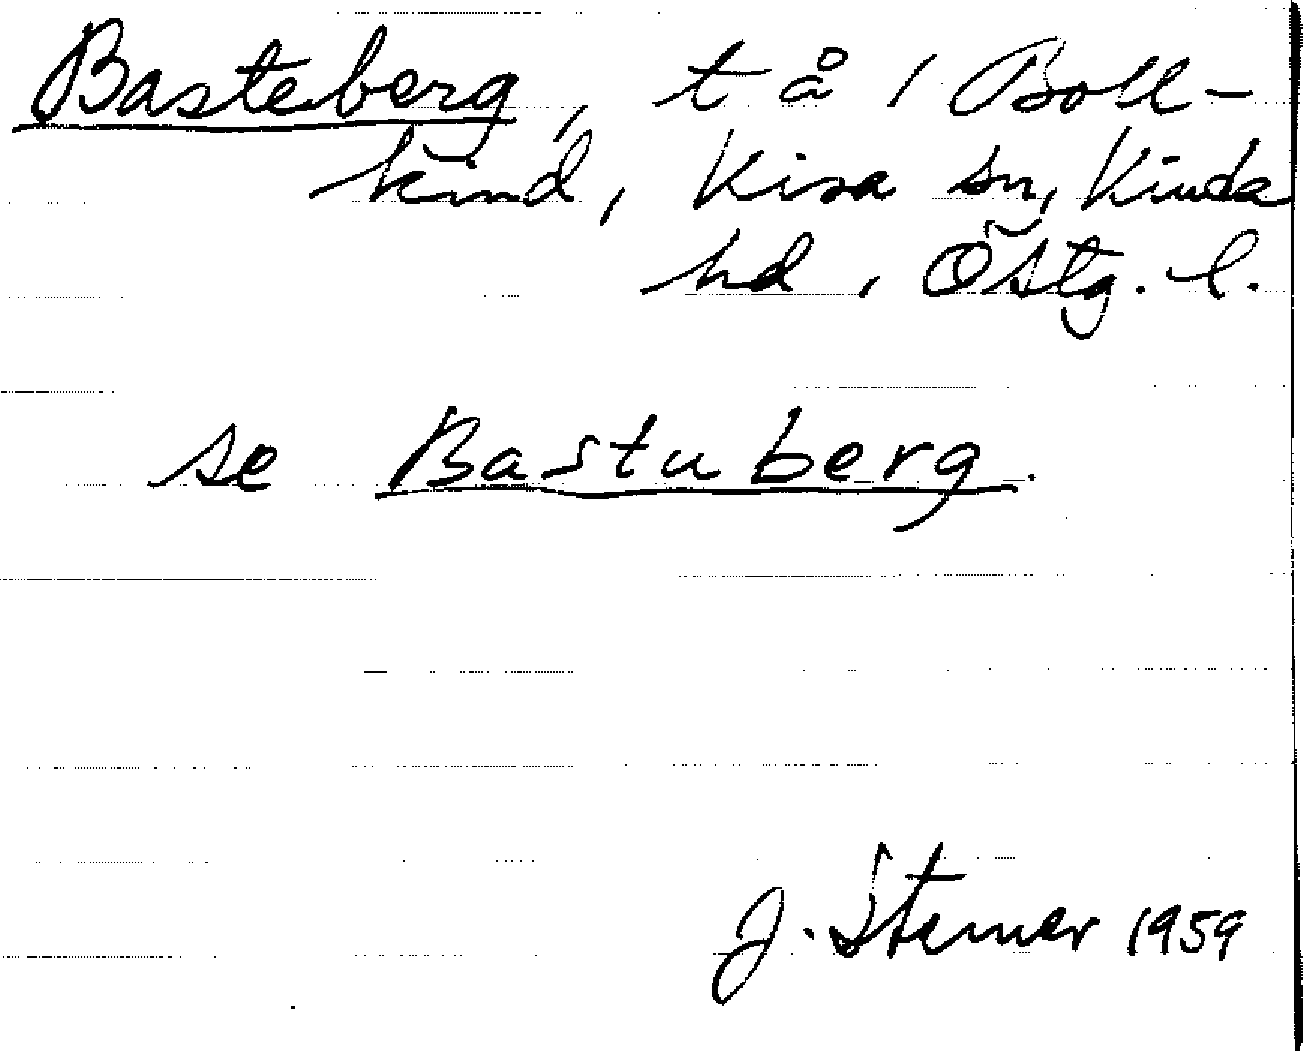 Basteberg, t å 1 Boll-
kind, Kisa sn, Kinda
hd, Östg. l.
se Bastuberg.
J. Sterner 1959